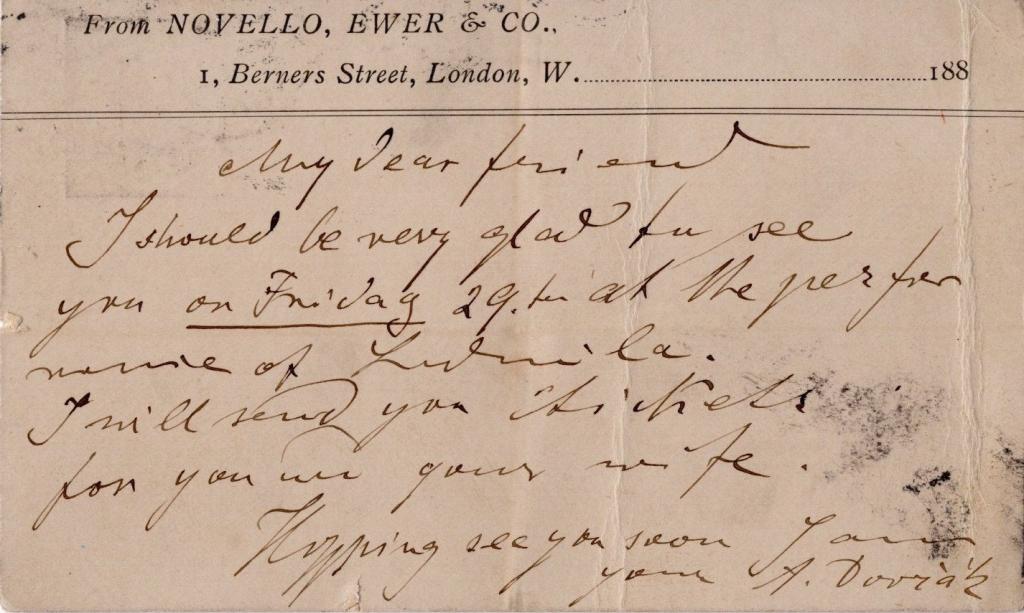 From NOVELLO, EWER & CO.,
1, Berners Street, London, W. 188
My dear friend
I should be very glad to see
you on Friday 29.th at the perfor
mance of Ludmila.
I will send you tickets
for you your wife.
Hopping see you soon I am
your A. Dvořák